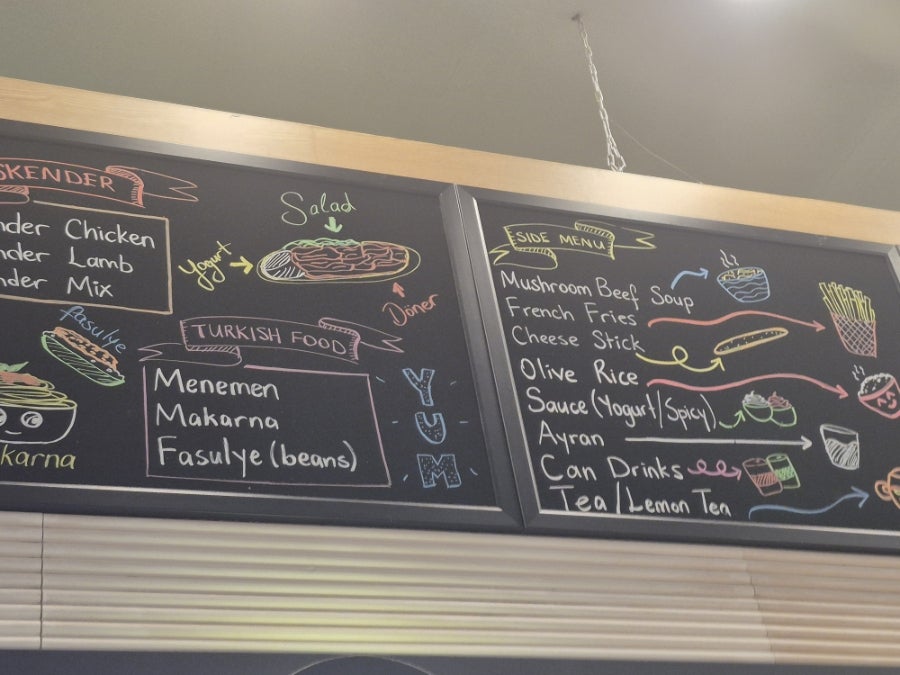 SKENDER
nder Chicken
nder Lamb
nder Mix
Salad
Yogurt
Döner
fasulye
karna
TURKISH FOOD
Menemen
Makarna
Fasulye (beans)
YUM
SIDE MENU
Mushroom Beef Soup
French Fries
Cheese Stick
Olive Rice
Sauce (Yogurt/Spicy)
Ayran
Can Drinks
Tea/Lemon Tea